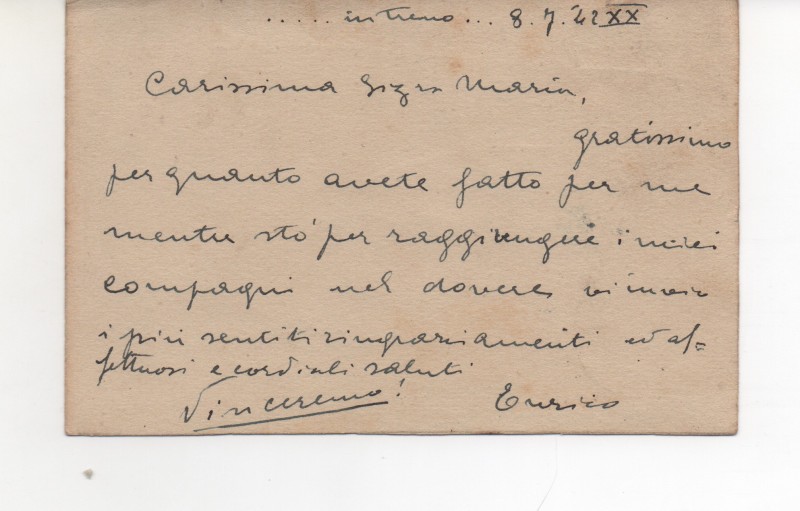 ..... in treno... 8.7.42 XX
Carissima Sig.ra Maria,
gratissimo
per quanto avete fatto per me
mentre sto' per raggiungere i miei
compagni nel dovere vi invio
i più sentiti ringraziamenti ed af=
fettuosi e cordiali saluti
Vinceremo! Enrico